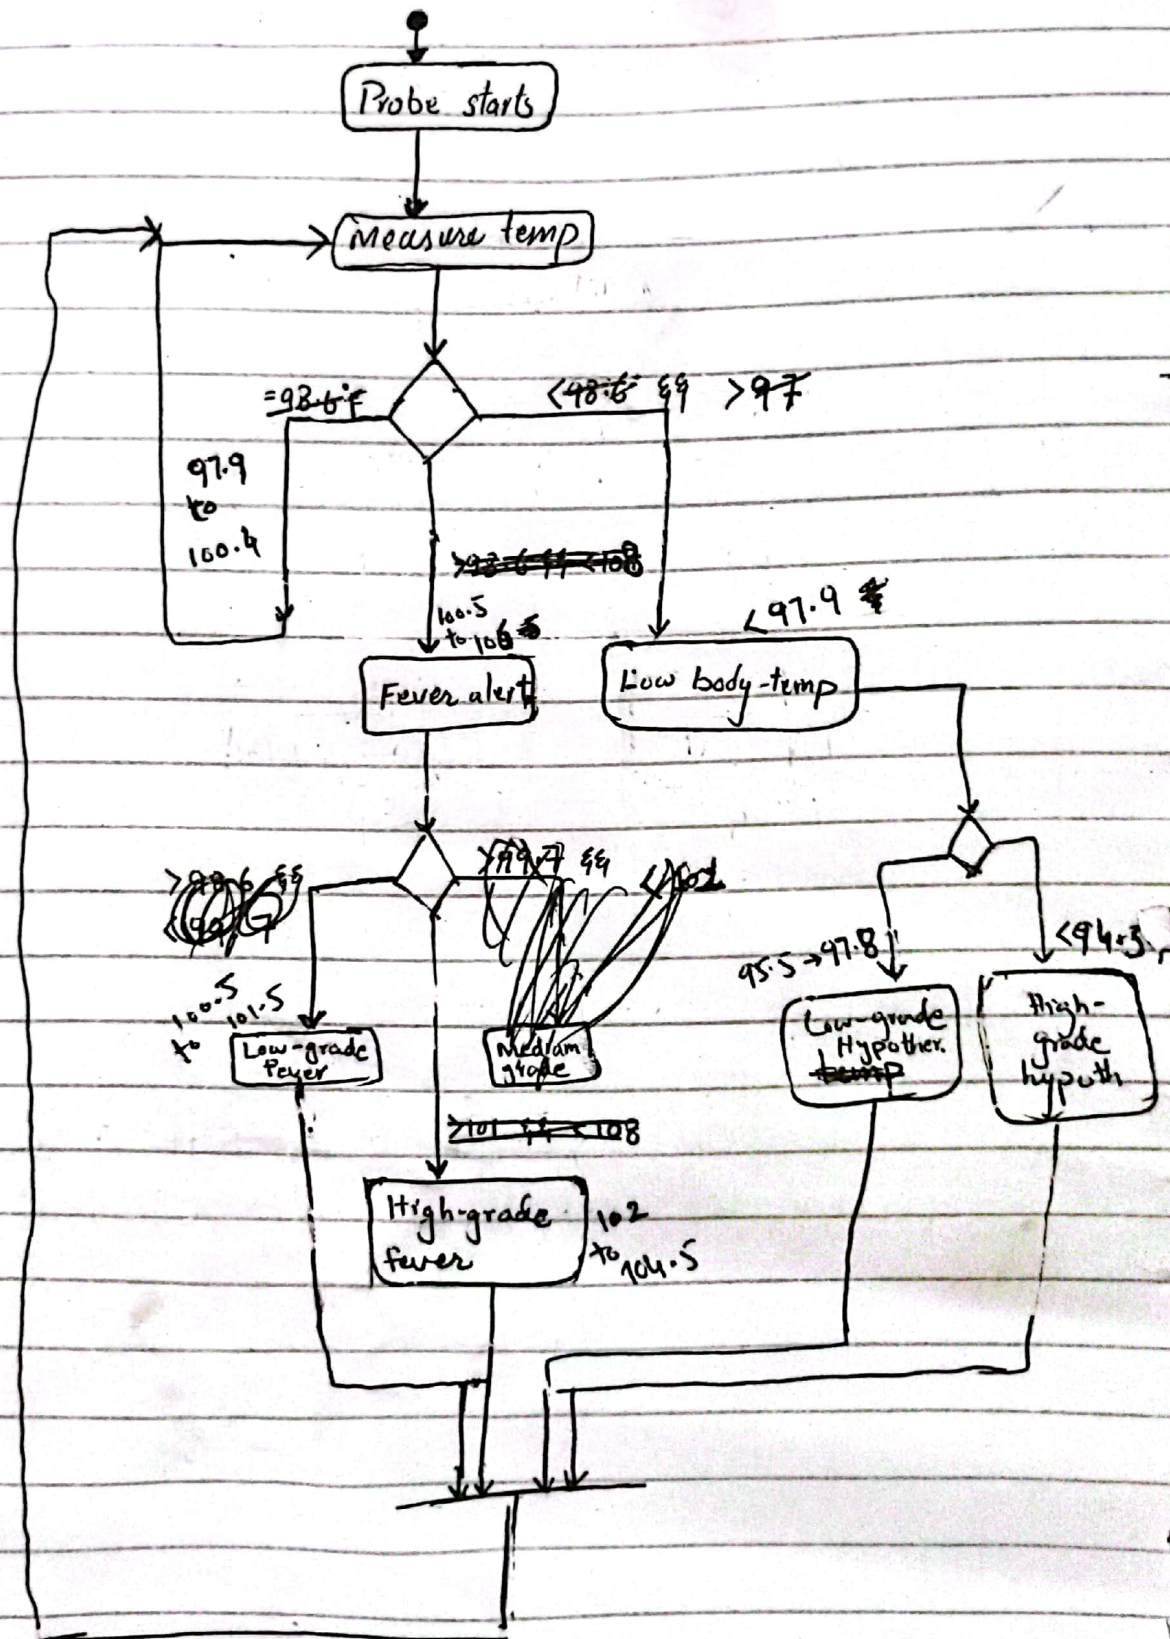 Probe starts
Measure temp
=98.6°F
<98.6 && >97
97.9
to
100.4
>98.6 && <108
100.5
to 106
<97.9
Fever alert
Low body-temp
>98.6 &&
>99.7 && <102
95.5→97.8
<94.3
100.5
to 101.5
Low-grade
Fever
Medium
grade
Low-grade
Hypother.
temp
High-
grade
hypoth
>101 && <108
High-grade
fever
102
to
104.5